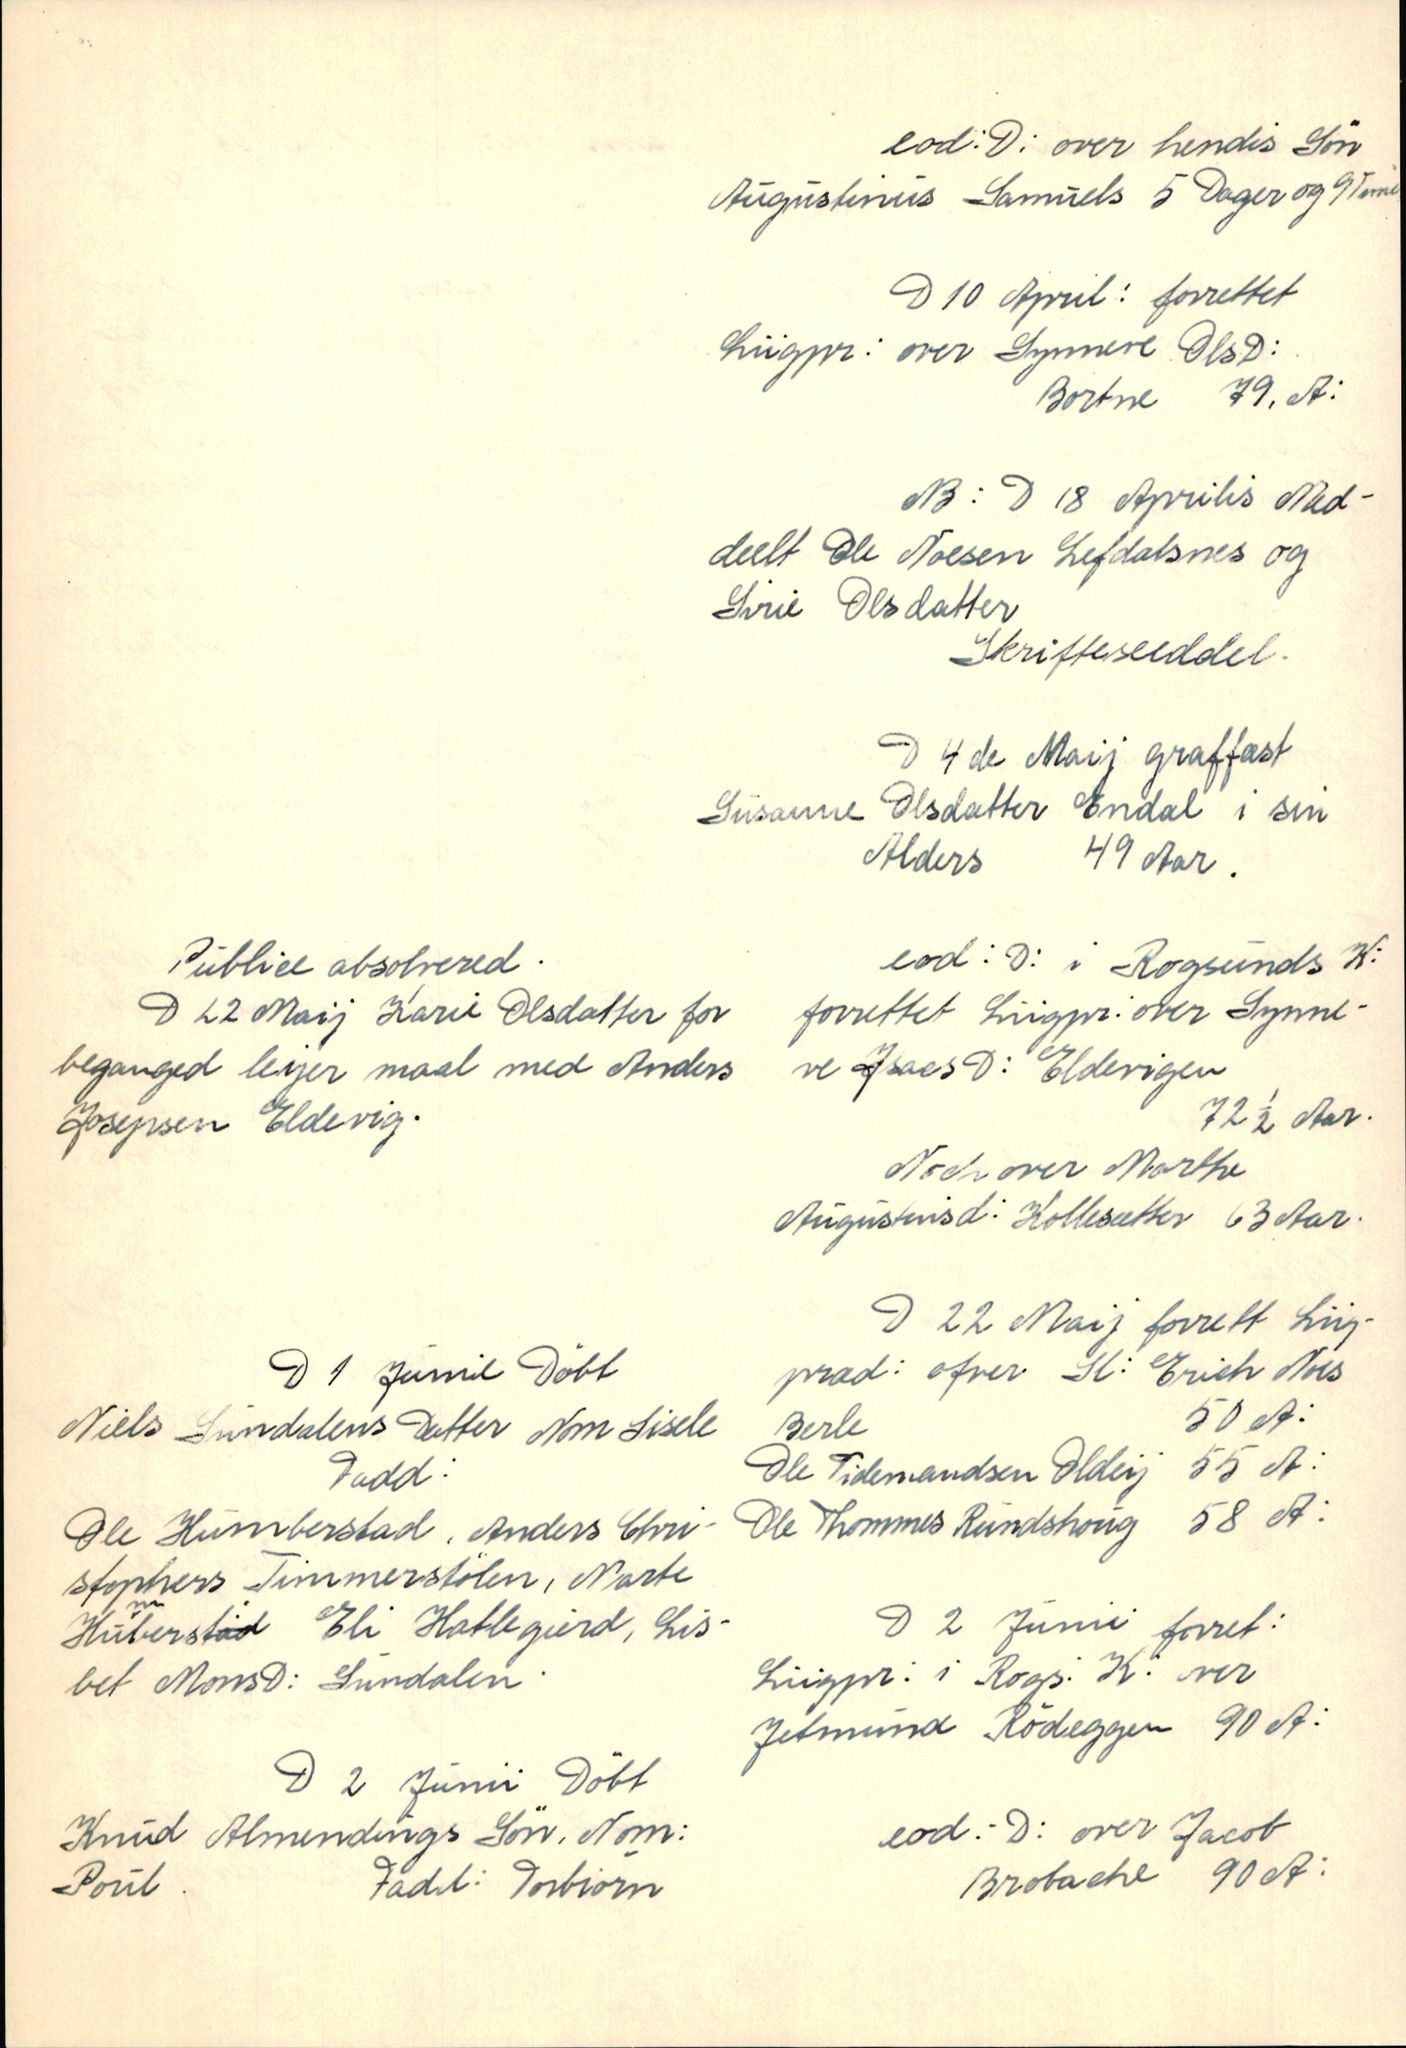 Publice absolvered.
D 22 Maij Karie Olsdatter for
beganged leijer maal med Anders
Josepsen Eldevig.
D 1 Junii Döbt
Niels Sundalens Datter Nom Sisele
Fadd:
Ole Humberstad, Anders Chri-
stophers Timmerstölen, Marte
Huberstad Eli Hatlegierd, Lis-
bet MonsD: Sundalen.
D 2 Junii Döbt
Knud Almendings Sön. Nom:
Poul. Fadd: Torbiörn
eod: D: over hendis Sön
Augustinus Samuels 5 Dager og 9 Time
D 10 April: forrettet
Liigpr: over Synneve OlsD:
Bortne 79. A:
NB: D 18 Aprilis Med-
deelt Ole Noesen Lefdalsnes og
Sirie Olsdatter
Skrifteseeddel.
D 4 de Maij graffæst
Susanne Olsdatter Endal i sin
Alders 49 Aar.
eod: D: i Rogsunds K:
forrettet Liigpr: over Synne-
ve IsacsD: Eldevigen
72 1/2 Aar.
Noch over Marthe
Augustinsd: Kollesætter 63 Aar.
D 22 Maij forrett Liig-
præd: ofver Sl: Erich Noes
Berle 50 A:
Ole Tidemandsen Oldeij 55 A:
Ole Thommes Rundshoug 58 A:
D 2 Junii forret:
Liigpr: i Rogs: K: over
Jetmund Rödeggen 90 A:
eod: D: over Jacob
Brobache 90 A: